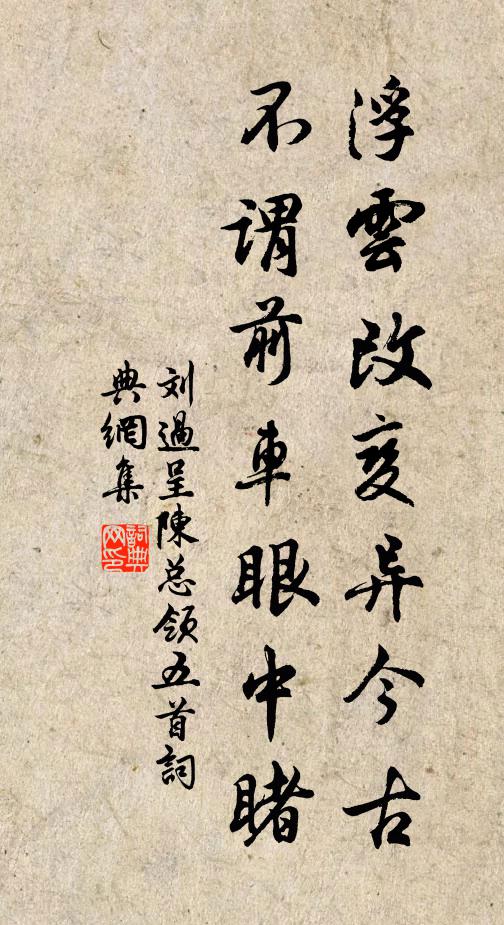 浮雲改变异今古
不谓前車眼中睹
刘過呈陳总领五首詞
典網集
詞典
网印